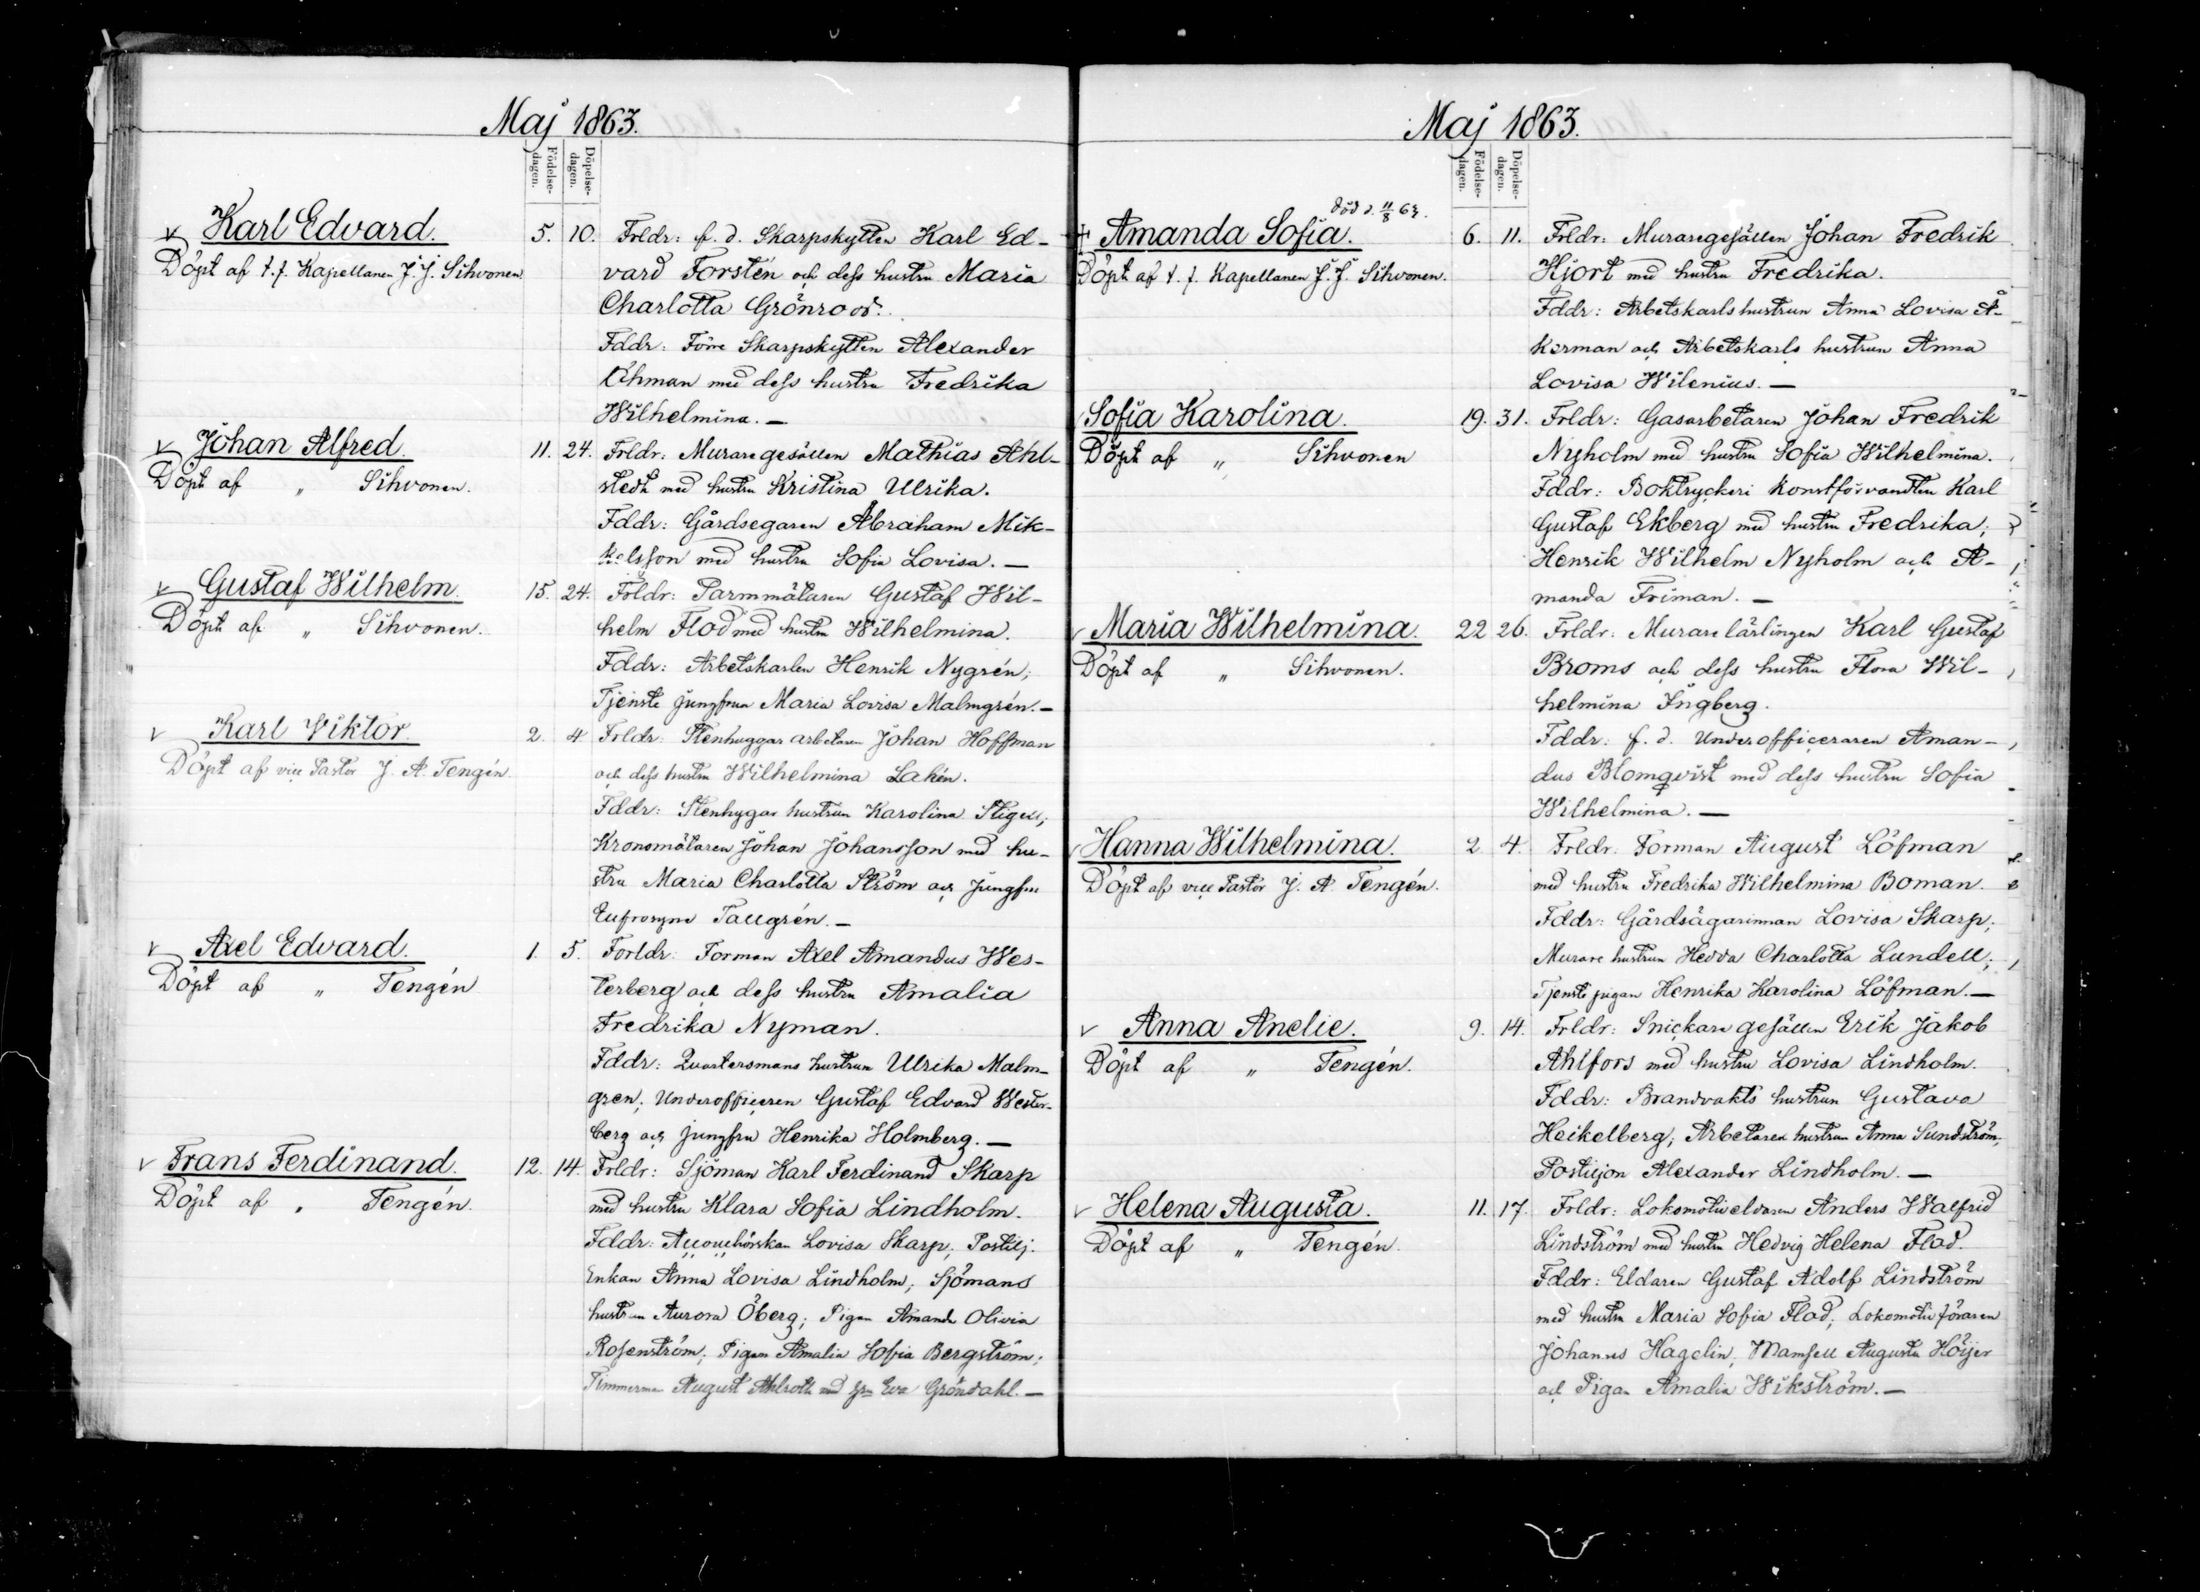 Maj 1863.
Födelse-
dagen.
Döpelse-
dagen.
Karl Edvard.
Döpt af t. f. Kapellanen J. J. Sihvonen
5. 10. Frldr: f. d. Skarpskytten Karl Ed-
vard Forstén och dess hustru Maria
Charlotta Grönroos.
Fddr: Förre Skarpskytten Alexander
Öhman med dess hustru Fredrika
Wilhelmina. —
Johan Alfred.
Döpt af „ Sihvonen.
11. 24. Frldr: Muraregesällen Mathias Ahl-
stedt med hustru Kristina Ulrika.
Fddr: Gårdsegaren Abraham Mik-
kelsson med hustru Sofia Lovisa. —
Gustaf Wilhelm.
Döpt af „ Sihvonen.
15. 24. Frldr: Parmmätaren Gustaf Wil-
helm Flod med hustru Wilhelmina.
Fddr: Arbetskarlen Henrik Nygrén;
Tjenste jungfrun Maria Lovisa Malmgrén. —
Karl Viktor.
Döpt af vice Pastor J. A. Tengén
2. 4 Frldr: Stenhuggar arbetaren Johan Hoffman
och dess hustru Wilhelmina Lahén.
Fddr: Stenhygar hustrun Karolina Stigell;
Kronomätaren Johan Johansson med hu-
stru Maria Charlotta Ström och Jungfru
Eufrosyne Tallgrén. —
Axel Edvard.
Döpt af „ Tengén
1. 5. Forldr: Forman Axel Amandus Wes-
terberg och dess hustru Amalia
Fredrika Nyman.
Fddr: Quartersmans hustrun Ulrika Malm-
gren; Underofficeren Gustaf Edvard Wester-
berg och jungfru Henrika Holmberg. —
Frans Ferdinand.
Döpt af „ Tengén.
12. 14. Frldr: Sjöman Karl Ferdinand Skarp
med hustru Klara Sofia Lindholm.
Fddr: Lovisa Skarp; Postilj.
Enkan Anna Lovisa Lindholm; Sjömans
hustrun Aurora Öberg; Pigan Amanda Olivia
Rosenström; Pigan Amalia Sofia Bergström;
Timmerman August Ahlroth med Eva Gröndahl. —
Maj 1863.
Födelse-
dagen.
Döpelse-
dagen.
död d. 11/8 63.
Amanda Sofia.
Döpt af t. f. Kapellanen J. J. Sihvonen.
6. 11. Frldr: Muraregesällen Johan Fredrik
Hjort med hustru Fredrika.
Fddr: Arbetskarls hustrun Anna Lovisa Å-
kerman och Arbetskarls hustrun Anna
Lovisa Wilenius. —
Sofia Karolina.
Döpt af „ Sihvonen
19. 31. Frldr: Gasarbetaren Johan Fredrik
Nyholm med hustru Sofia Wilhelmina.
Fddr: Boktryckeri Konstförvandten Karl
Gustaf Ekberg med hustru Fredrika;
Henrik Wilhelm Nyholm och A-
manda Friman. —
Maria Wilhelmina.
Döpt af „ Sihvonen.
22 26. Frldr: Murarelärlingen Karl Gustaf
Broms och dess hustru Flora Wil-
helmina Ingberg.
Fddr: f. d. Underofficeraren Aman-
dus Blomqvist med dess hustru Sofia
Wilhelmina. —
Hanna Wilhelmina.
Döpt af vice Pastor J. A. Tengén.
2 4. Frldr: Forman August Löfman
med hustru Fredrika Wilhelmina Boman.
Fddr: Gårdsägarinnan Lovisa Skarp;
Murare hustrun Hedda Charlotta Lundell;
Tjenste pigan Henrika Karolina Löfman. —
Anna Anelie.
Döpt af „ Tengén.
9. 14. Frldr: Snickare gesällen Erik Jakob
Ahlfors med hustru Lovisa Lindholm.
Fddr: Brandvakts hustrun Gustava
Heikelberg; Arbetaren hustrun Anna Sundström,
Postiljon Alexander Lindholm. —
Helena Augusta.
Döpt af „ Tengén.
11. 17. Frldr: Lokomotiveldaren Anders Walfrid
Lindström med hustru Hedvig Helena Flod.
Fddr: Eldaren Gustaf Adolf Lindström
med hustru Maria Sofia Flod; Lokomotivföraren
Johannes Hagelin; Mamsell Augusta Höijer
och Pigan Amalia Wikström. —